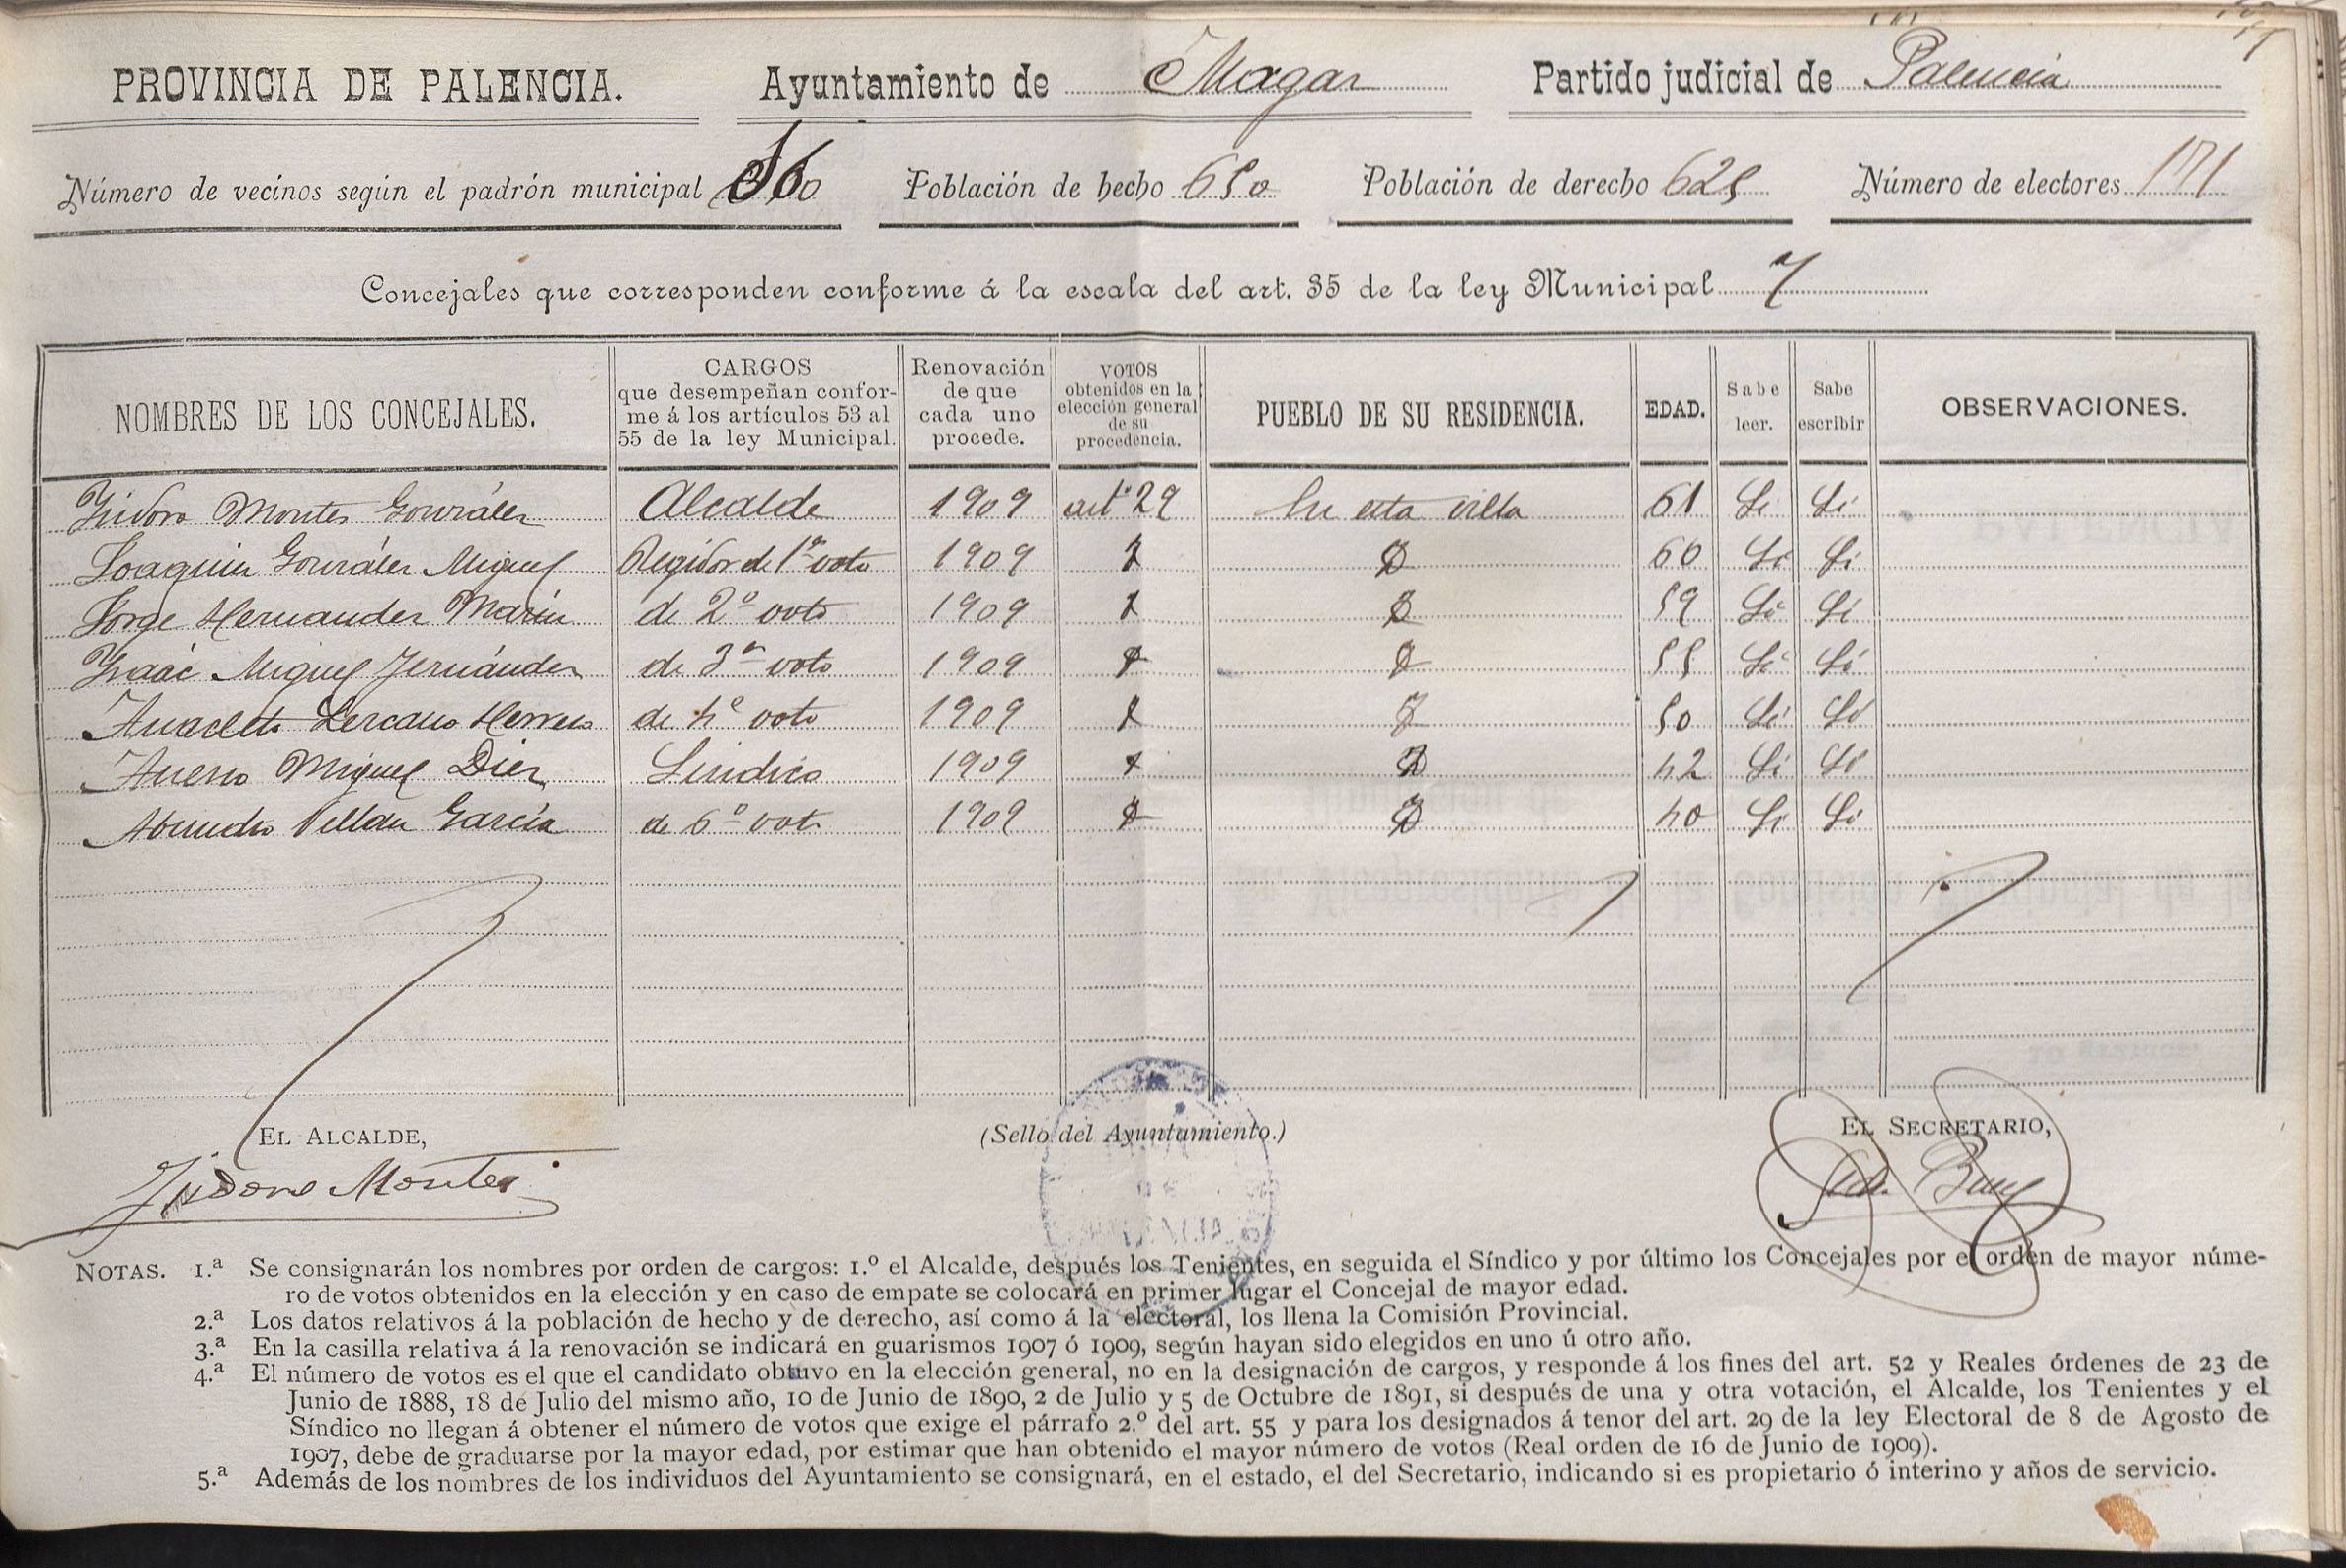 PROVINCIA DE PALENCIA. Ayuntamiento de Magaz Partido judicial de Palencia
Número de vecinos según el padrón municipal Población de hecho 650 Población de derecho 625 Número de electores 171
Concejales que corresponden conforme á la escala del art. 35 de la ley Municipal 7
NOMBRES DE LOS CONCEJALES. CARGOS que desempeñan confor-me á los artículos 53 al 55 de la ley Municipal. Renovación de que cada uno procede. VOTOS obtenidos en la elección general de su procedencia. PUEBLO DE SU RESIDENCIA. EDAD. Sabe leer. Sabe escribir OBSERVACIONES.
Isidoro Montes González Alcalde 1909 artº 29 En esta villa 61 Si Si
Joaquin González Miguel Regidor de 1er voto 1909 60 Si Si
Jorge Hernandez Marin de 2º voto 1909 59 Si Si
Isaác Miguel Fernández de 3er voto 1909 55 Si Si
Anacleto Lezcano Herrero de 4º voto 1909 50 Si Si
Miguel Diez Sindico 1909 42 Si Si
Abundio Villan García de 6º voto 1909 40 Si Si
EL ALCALDE, (Sello del Ayuntamiento.) EL SECRETARIO,
Isidoro Montes
NOTAS. 1.ª Se consignarán los nombres por orden de cargos: 1.º el Alcalde, después los Tenientes, en seguida el Síndico y por último los Concejales por el orden de mayor núme-
ro de votos obtenidos en la elección y en caso de empate se colocará en primer lugar el Concejal de mayor edad.
2.ª Los datos relativos á la población de hecho y de derecho, así como á la electoral, los llena la Comisión Provincial.
3.ª En la casilla relativa á la renovación se indicará en guarismos 1907 ó 1909, según hayan sido elegidos en uno ú otro año.
4.ª El número de votos es el que el candidato obtuvo en la elección general, no en la designación de cargos, y responde á los fines del art. 52 y Reales órdenes de 23 de
Junio de 1888, 18 de Julio del mismo año, 10 de Junio de 1890, 2 de Julio y 5 de Octubre de 1891, si después de una y otra votación, el Alcalde, los Tenientes y el
Síndico no llegan á obtener el número de votos que exige el párrafo 2.º del art. 55 y para los designados á tenor del art. 29 de la ley Electoral de 8 de Agosto de
1907, debe de graduarse por la mayor edad, por estimar que han obtenido el mayor número de votos (Real orden de 16 de Junio de 1909).
5.ª Además de los nombres de los individuos del Ayuntamiento se consignará, en el estado, el del Secretario, indicando si es propietario ó interino y años de servicio.